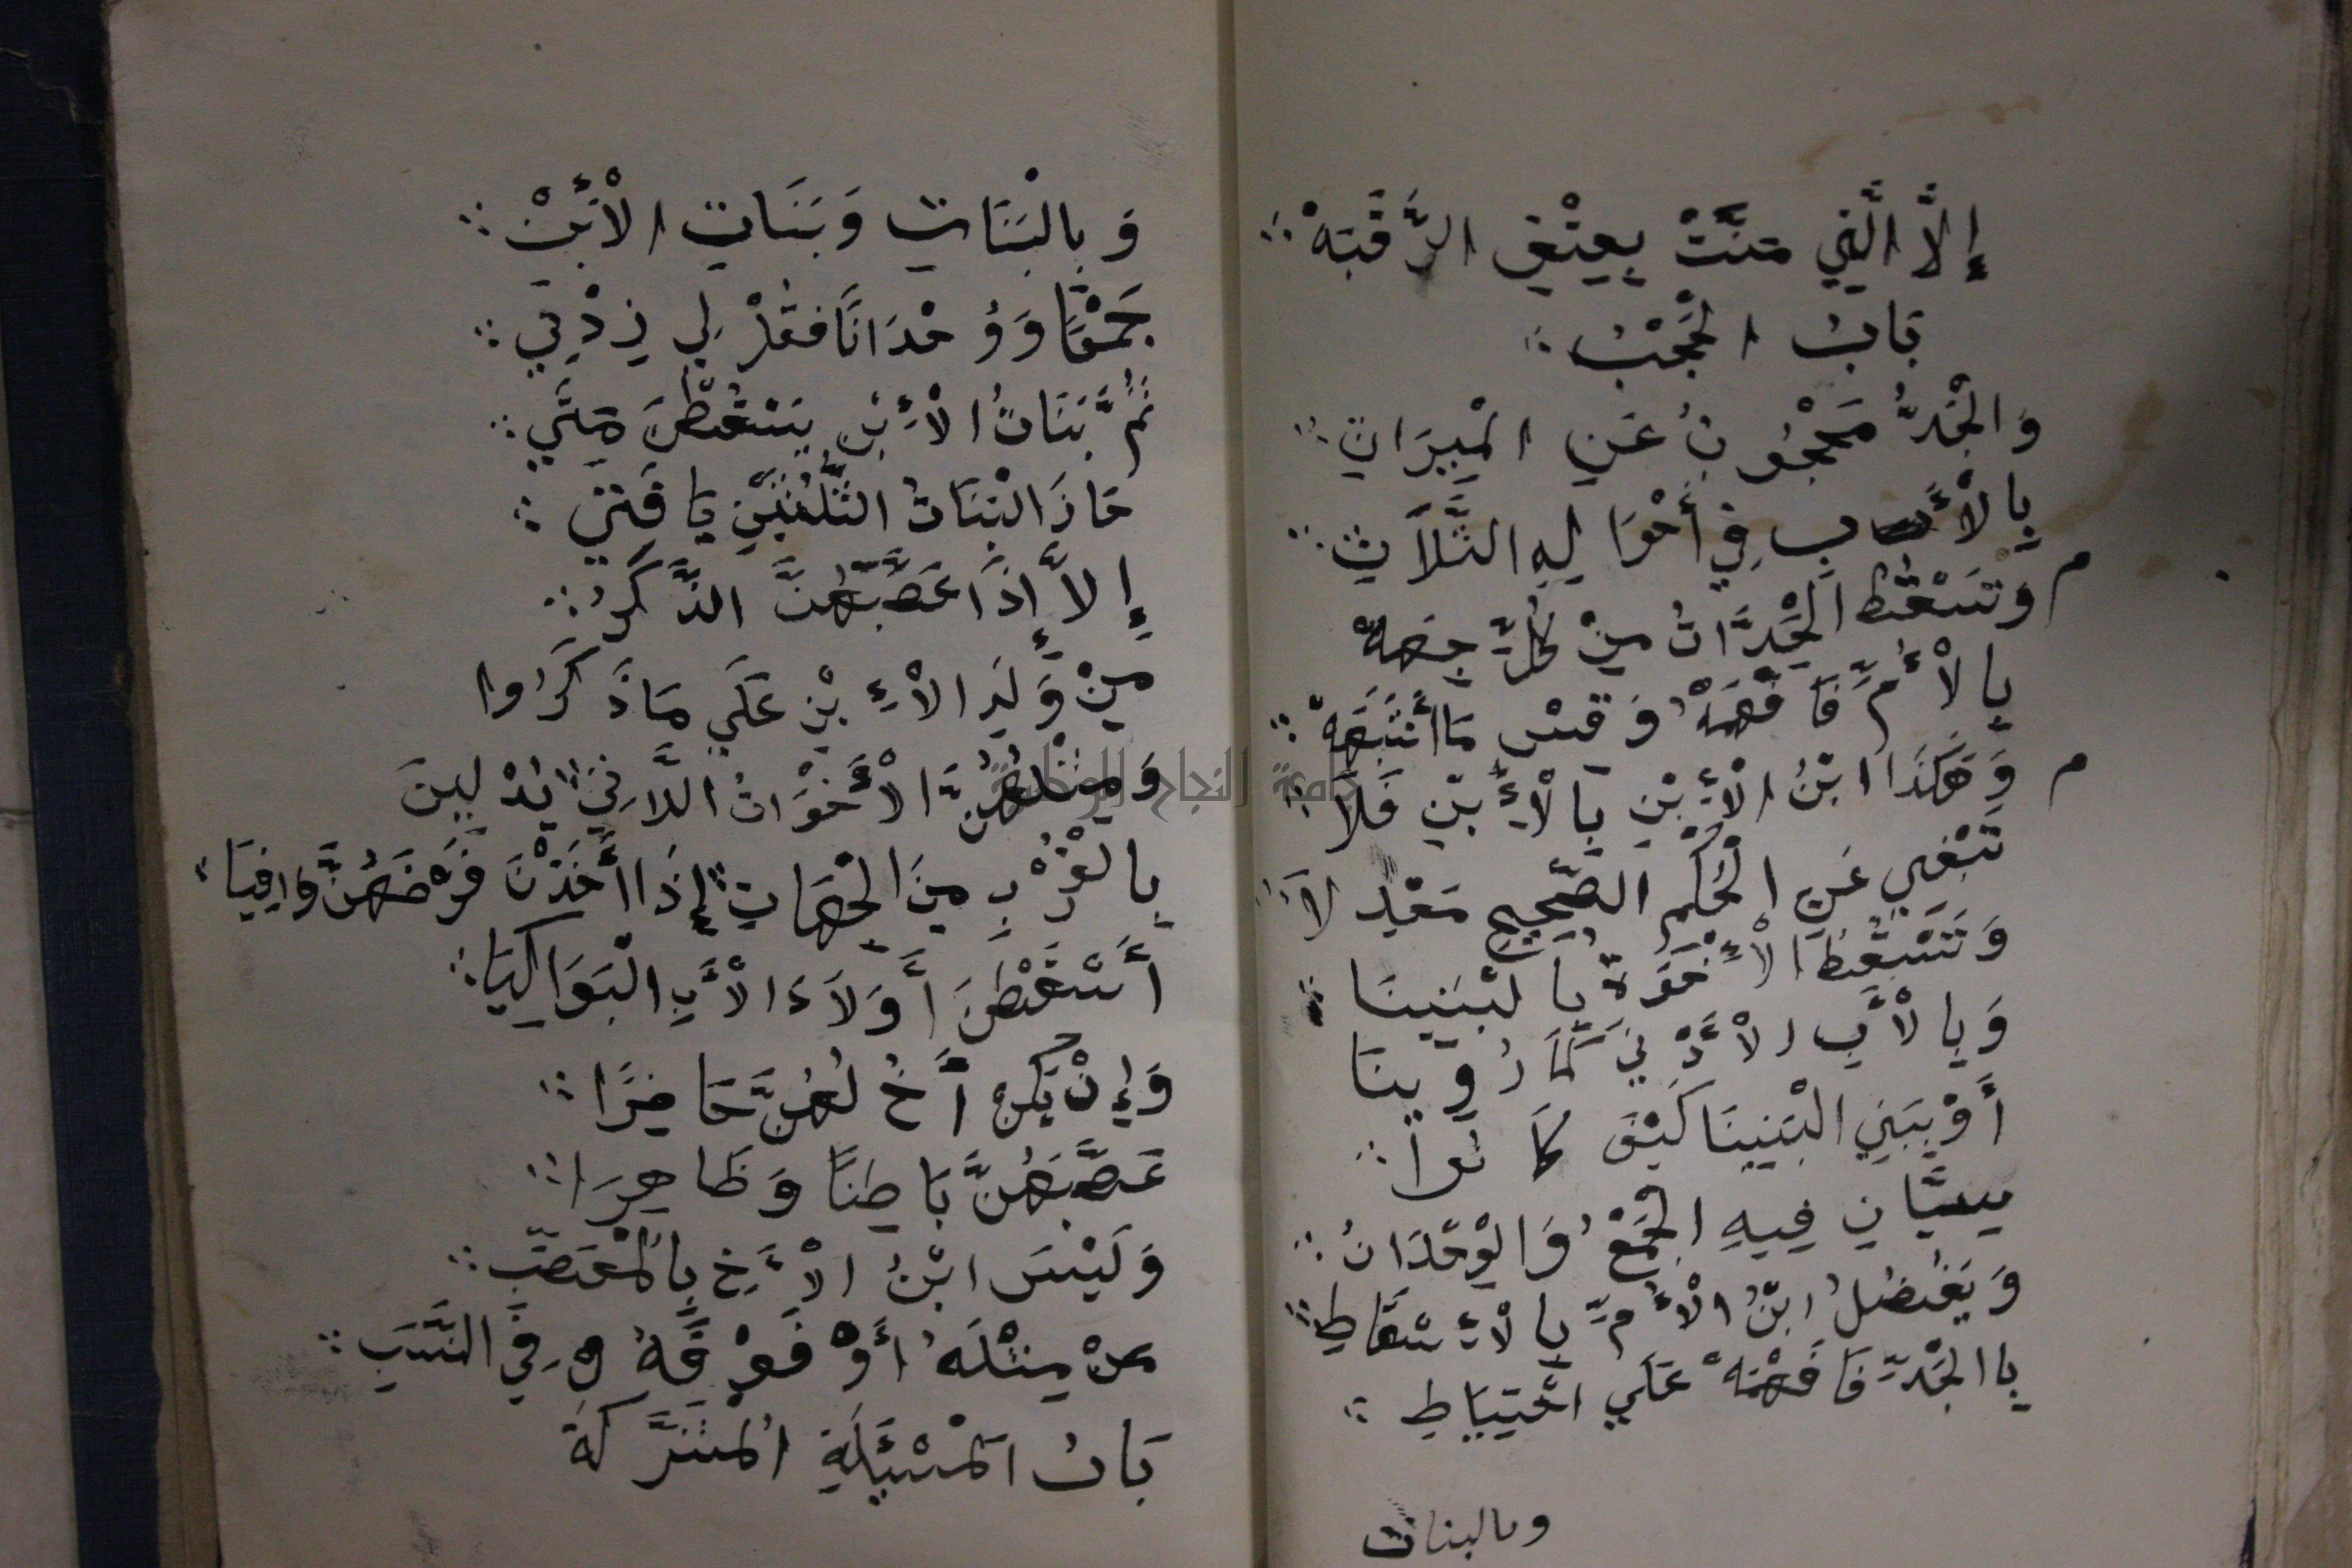 إِلَّا الَّتِي مَنَّتْ بِعِتْقِ الرَّقَبَهْ
بَابُ الْحَجْبُ
وَالْجَدُّ مَحْجُوبٌ عَنِ الْمِيرَاثِ
بِالْأَبِ فِي أَحْوَالِهِ الثَّلَاثِ
م وَتَسْقُطُ الْجَدَّاتُ مِنْ كُلِّ جِهَهْ
بِالْأُمِّ فَافْهَمْهُ وَقِسْ مَا أَشْبَهَهْ
م وَهَكَذَا ابْنُ الْإِبْنِ بِالْإِبْنِ فَلَا
تَبْغِي عَنِ الْحُكْمِ الصَّحِيحِ مَعْدِلَا
وَتَسْقُطُ الْإِخْوَةُ بِالْبَنِينَا
وَبِالْأَبِ الْأَدْنَى كَمَا رُوِينَا
أَوْ بِبَنِي الْبَنِينَا كَيْفَ كَانُوا
سِيَّانِ فِيهِ الْجَمْعُ وَالْوِحْدَانُ
وَيَفْضُلُ ابْنُ الْأُمِّ بِالْإِسْقَاطِ
بِاالْجَدِّ فَافْهَمْهُ عَلَى احْتِيَاطِ
وبالبنات
وَبِالْبَنَاتِ وَبَنَاتِ الْأِبْنِ
جَمْعًا وَوُحْدَانًا فَقُلْ لِي زِدْنِي
ثُمَّ بَنَاتُ الْإِبْنِ يَسْقُطْنَ مَتَى
حَازَ الْبَنَاتُ الثُّلُثَيْنِ يَا فَتَى
إِلَّا إِذَا عَصَّبَهُنَّ الذَّكَرُ
مِنْ وَلَدِ الْإِبْنِ عَلَى مَا ذَكَرُوا
وَمِثْلُهُنَّ الْأَخَوَاتُ اللَّاتِي يُدْلِينَ
بِالْقُرْبِ مِنَ الْجِهَاتِ إِذَا أَخَذْنَ فَرْضَهُنَّ وَافِيَا
أَسْقَطْنَ أَوَلَادَ الْأَبِ الْبَوَاكِيَا
وَإِنْ يَكُنْ أَخٌ لَهُنَّ حَاضِرًا
عَصَّبَهُنَّ بَاطِنًا وَظَاهِرَا
وَلَيْسَ ابْنُ الْأَخِ بِالْمُعَصِّبِ
مَنْ مِثْلَهُ أَوْ فَوْقَهُ فِي النَّسَبِ
بَابُ الْمَسْئَلَةِ الْمُشَرَّكَةِ
جامعة النجاح الوطنية